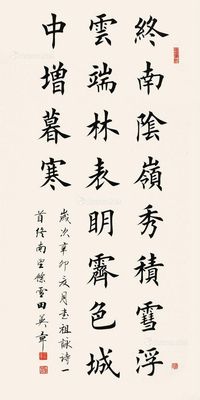 終南陰嶺秀積雪浮
雲端林表明霽色城
中增暮寒
歲次辛卯夏月書祖詠詩一
首終南望餘雪田英章